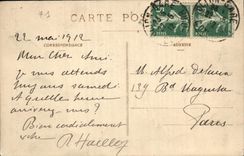 CARTE POSTALE
22 mai 1912
CORRESPONDANCE
ADRESSE
Mon Cher Ami
Je vous attends
toujours samedi
A quelle heure
arrivez-vous ?
Bien cordialement
votre
M. Alfred
139 Bd Magenta
Paris